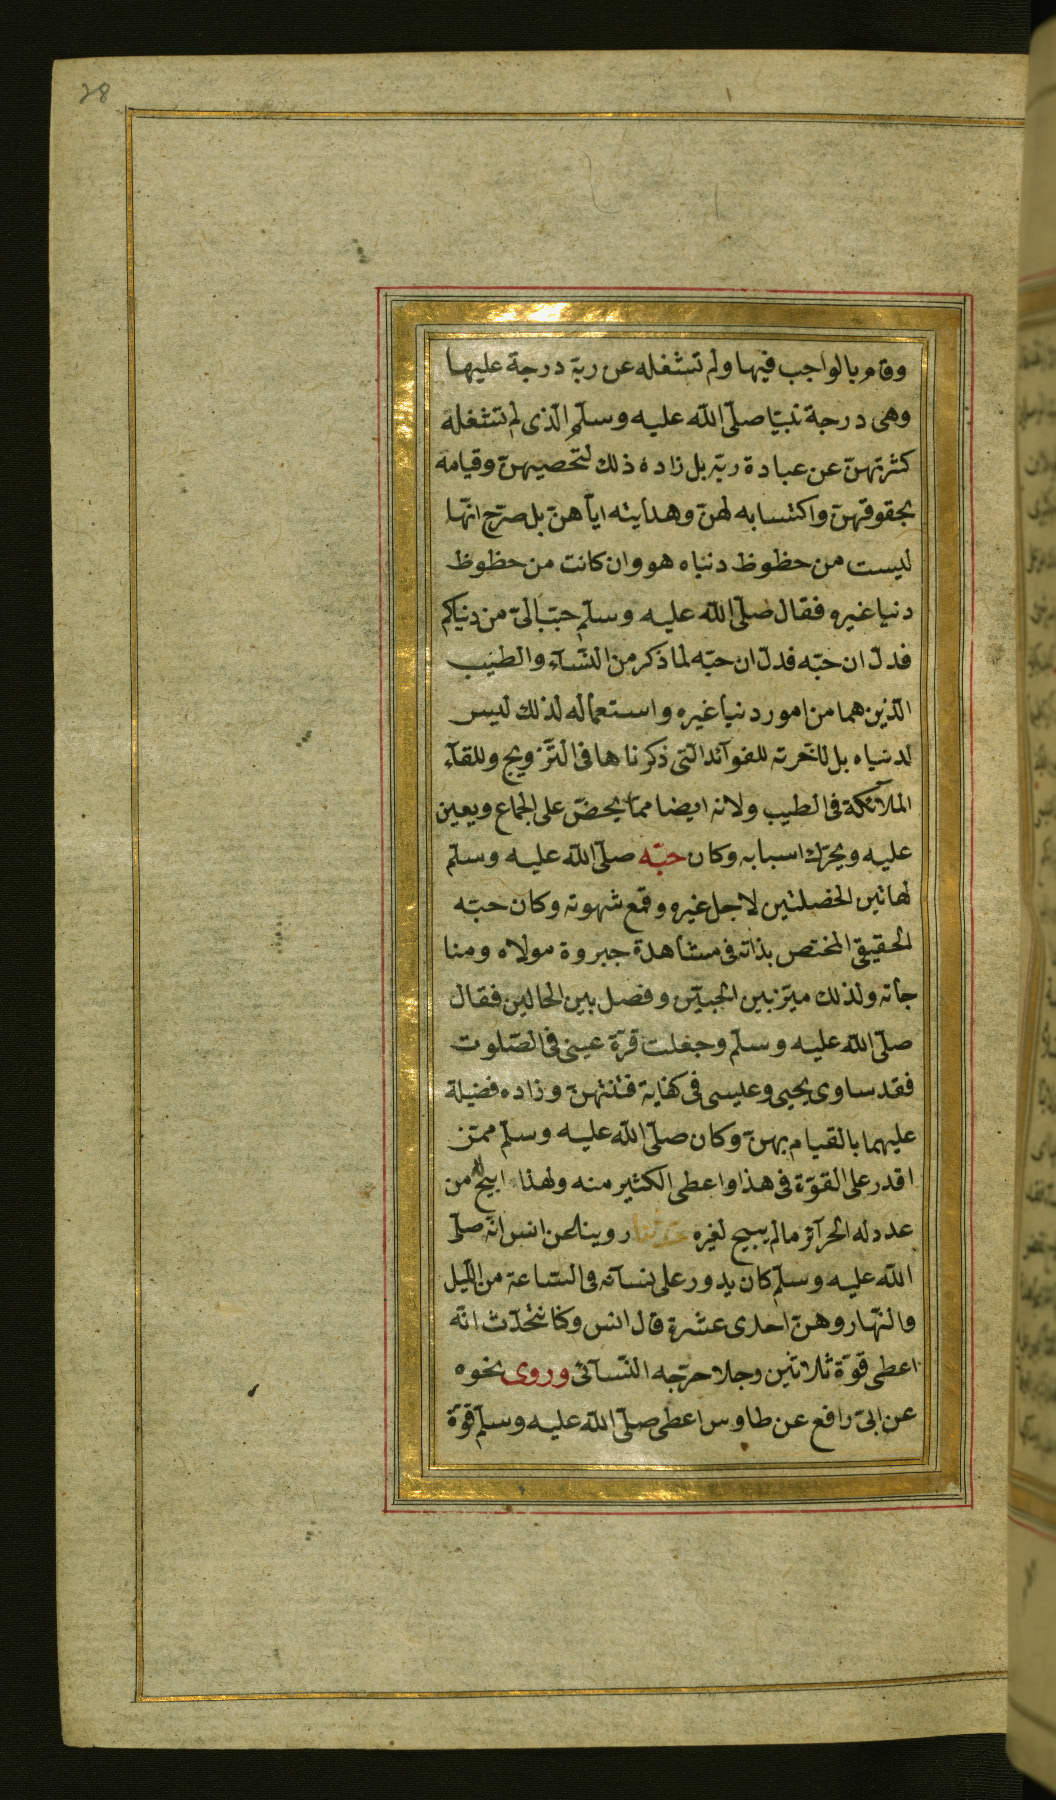 28
وقام بالواجب فيها ولم تشغله عن ربّه درجة عليها
وهى درجة نبيّنا صلّى اللّه عليه وسلّم الّذى لم تشغله
كثرتهنّ عن عبادة ربّه بل زاده ذلك لتحصيهنّ وقيامه
بحقوقهنّ واكتسابه لهنّ وهدايته ايّاهنّ بل صرّح انّها
ليست من حظوظ دنياه هو وان كانت من حظوظ
دنيا غيره فقال صلّى اللّه عليه وسلّم حبّب الىّ من دنياكم
فدلّ ان حبّه فدلّ ان حبّه لما ذكر من النّسآء والطّيب
الّذين هما من امور دنيا غيره واستعماله لذلك ليس
لدنياه بل لآخرته للفوآئد الّتى ذكرناها فى التّزويج وللقآء
الملآئكة فى الطيب ولانه ايضا ممّا يحضّ على الجماع ويعين
عليه ويحرّك اسبابه وكان حبّه صلّى اللّه عليه وسلّم
لهاتين الخصلتين لاجل غيره وقمع شهوته وكان حبّه
الحقيقى المختص بذاته فى مشاهدة جبروة مولاه ومنا
جاته ولذلك ميّز بين الحبيّن وفصل بين الحالين فقال
صلّى اللّه عليه وسلّم وجعلت قرّة عينى فى الصّلوت
فقد ساوى يحيى وعيسى فى كفاية فتنتهنّ وزاده فضيلة
عليهما بالقيام بهنّ وكان صلّى اللّه عليه وسلّم ممّن
اقدر على القوّة فى هذا واعطى الكثير منه ولهذا ابيح له من
عدد له الحرآئر مالم يبيح لغيره روينا عن انس انّه صلّى
اللّه عليه وسلّم كان يدور على نسآئه فى السّاعة من اللّيل
والنّهار وهنّ احدى عشرة قال انس وكنّا نتحدّث انّه
اعطى قوّة ثلاثين رجلا خرّجه النّسآئى وروى نحوه
عن ابى رافع عن طاوس اعطى صلّى اللّه عليه وسلّم قوّة